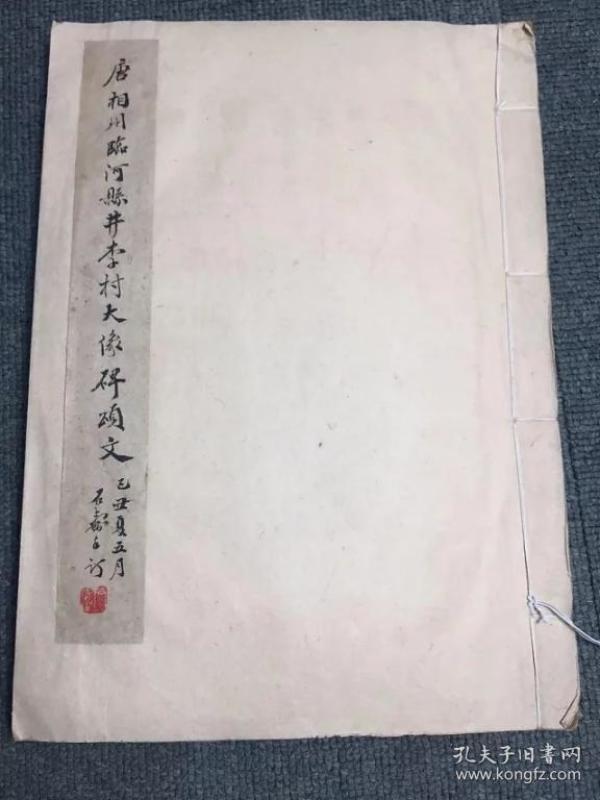 唐相州臨河縣井李村大像碑頌文
己丑夏五月
孔夫子旧书网
www.kongfz.com